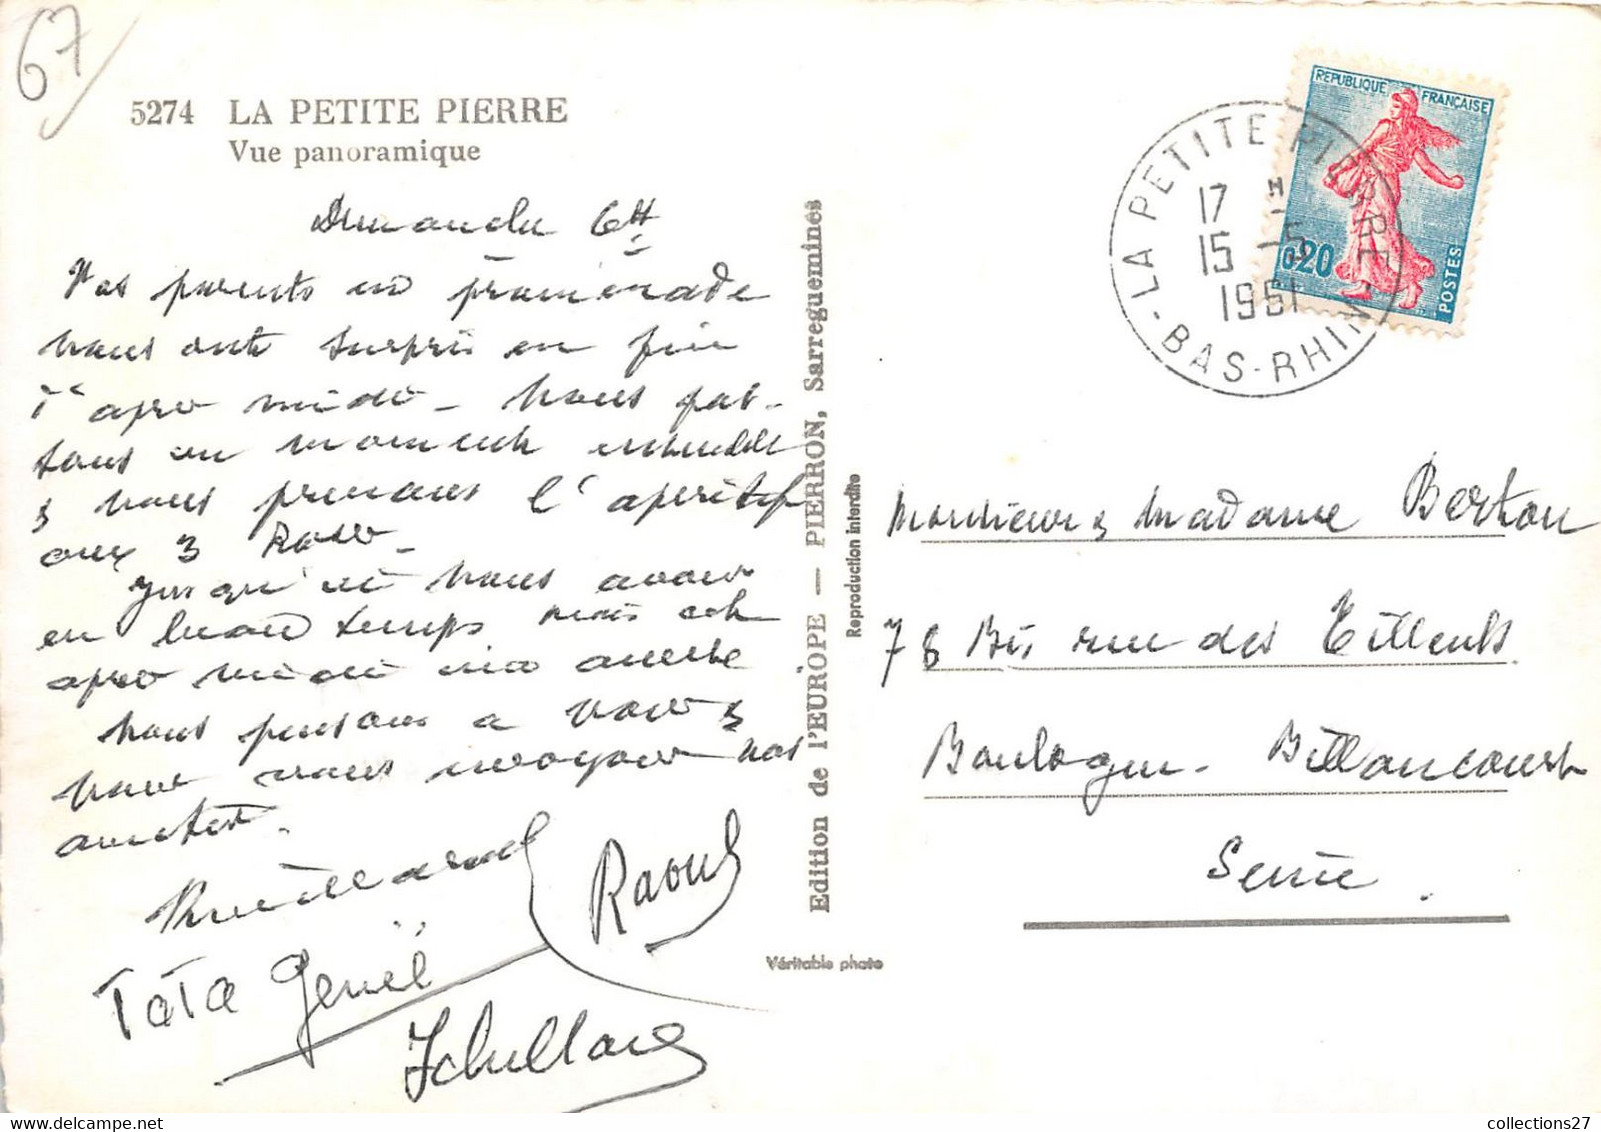 67
5274 LA PETITE PIERRE
Vue panoramique
Dimanche 6H
Vos parents en promenade
nous ont surpris en fin
d'apres midi - nous pas-
sons un moment ensemble
& nous prenons l'aperitif
aux 3 Roses -
Jusqu'ici nous avons
eu beau temps mais cet
apres midi une averse
nous pensons a vous &
nous vous envoyons nos
amities.
Raoul
Tata
Edition de l'EUROPE — PIERRON, Sarreguemines
Reproduction interdite
Véritable photo
REPUBLIQUE FRANÇAISE
0,20
POSTES
LA PETITE PIERRE
17 H
15 -5
1961
BAS-RHIN
Monsieur & Madame Berton
78 Bis rue des Tilleuls
Boulogne - Billancourt
Seine.
collections27